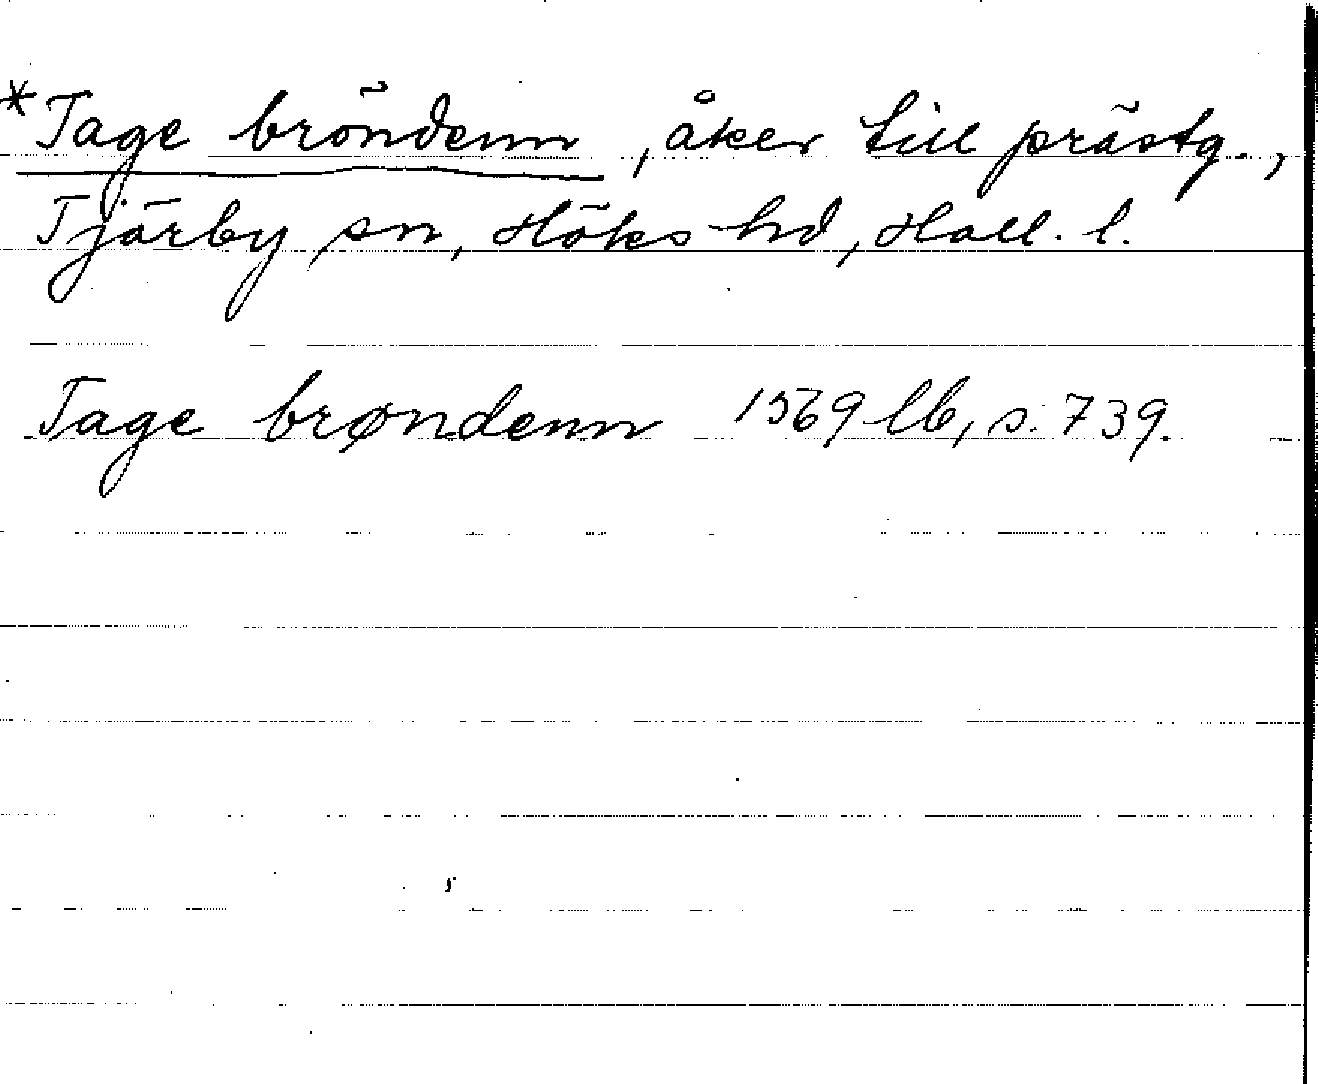 *Tage bröndenn, åker till prästg.,
Tjärby sn, Höks hd, Hall. l.
Tage brøndenn 1569 lb, s. 739.